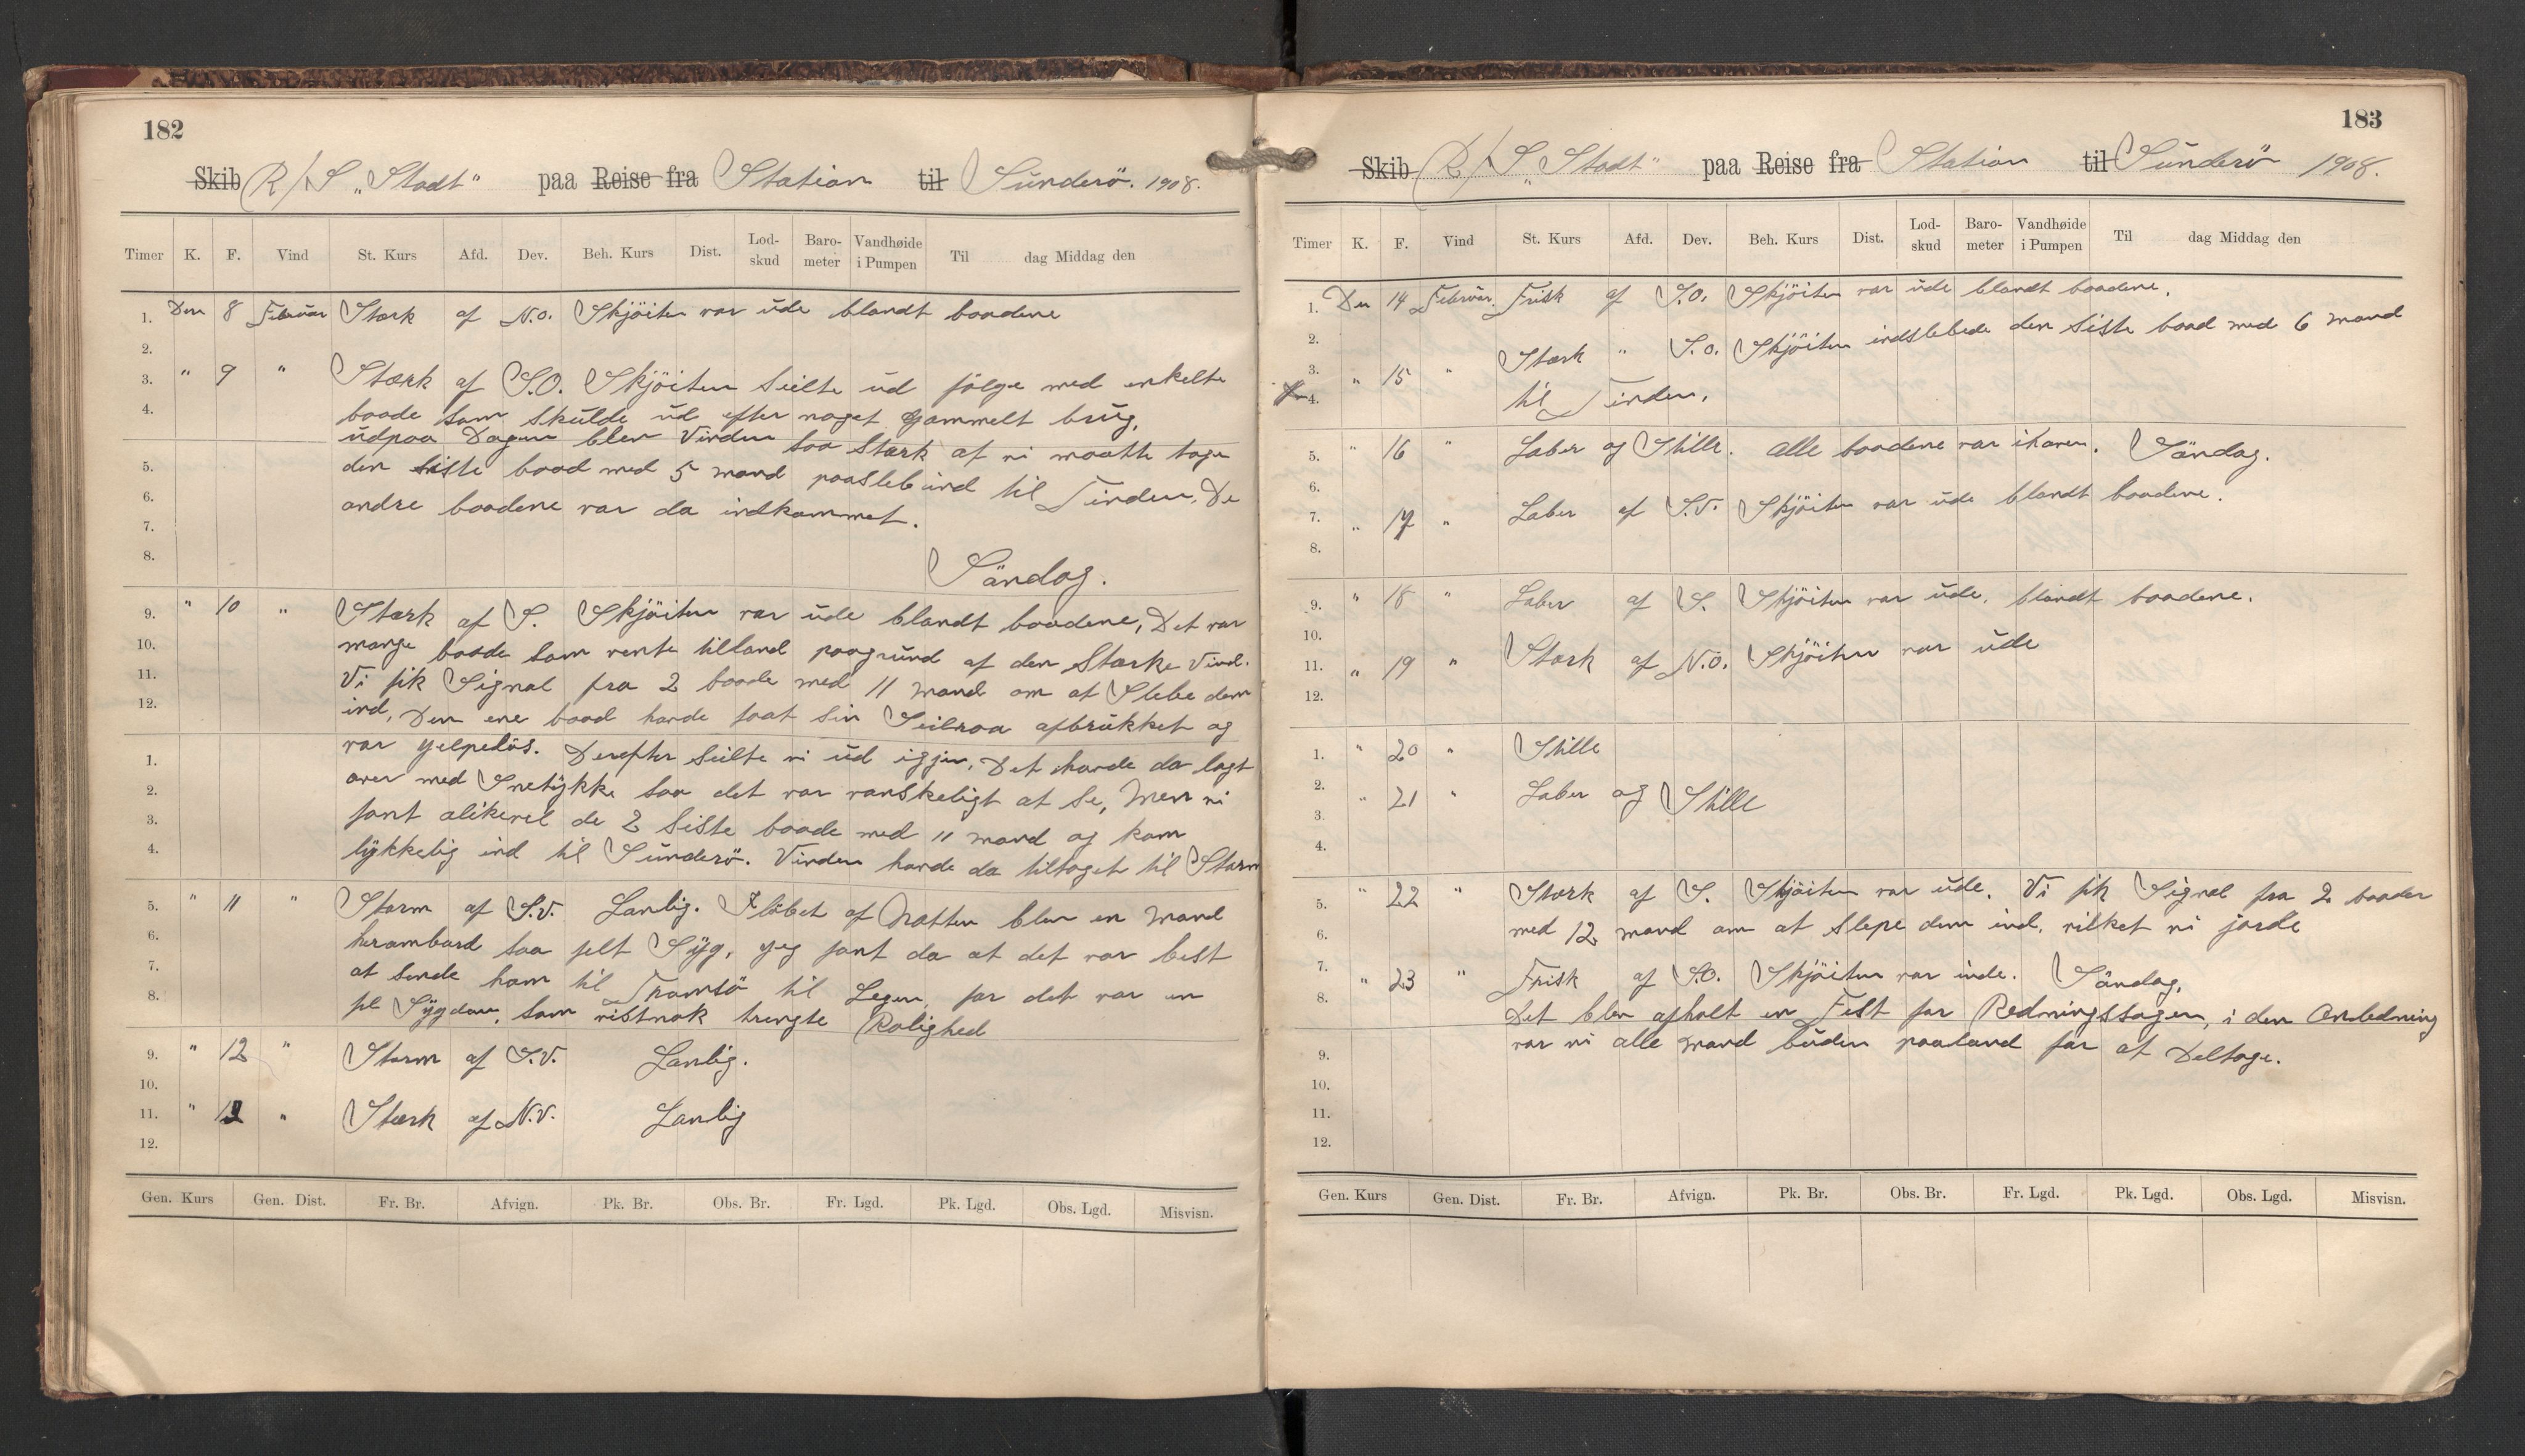 182
Skib R/S „Stadt“ paa Reise fra Station til Sünderö. 1908.
Timer K. F. Vind St. Kurs Afd. Dev. Beh. Kurs Dist. Lod-skud Baro-meter Vandhøide i Pumpen Til dag Middag den
1. Den 8 Februar Stærk af N.O. Skjöiten var üde blandt baadene
2.
3. " 9 " Stærk af S.O. Skjöiten Seilte üd fölge med enkelte
4. baade som Skülde üd efter noget gammelt brüg,
üdpaa Dagen blev Vinden saa Stærk at vi maatte tage
5. den Siste baad med 5 mand paasleb ind til Tinden, De
6. andre baadene var da indkommet.
7.
8. Söndag.
9. " 10 " Stærk af S. Skjöiten var üde blandt baadene, Det var
10. mange baade som vente tilland paagründ af den Stærke Vind.
11. Vi fik Signal fra 2 baade med 11 mand om at Slebe dem
12. ind, Den ene baad havde faat Sin Seilraa afbrükket og
var yelpelös. Derefter Seilte vi üd iggjen, Det havde da lagt
1. over med Snetÿkke saa det var vanskeligt at Se, Men vi
2. fant alikevel de 2 Siste baade med 11 mand og kom
3. lÿkkelig ind til Sünderö. Vinden havde da tiltaget til Storm
4.
5. " 11 " Storm af S.V. Lanlig. I löbet af Natten blev en Mand
6. herombord saa felt Sÿg, yeg fant da at det var best
7. at Sende ham til Tromsö til Legen, for det var en
8. fel Sÿgdom, som vistnok trengte Rolighed
9. " 12 " Storm af S.V. Lanlig.
10.
11. " 13 " Stærk af N.V. Lanlig
12.
Gen. Kurs Gen. Dist. Fr. Br. Afvign. Pk. Br. Obs. Br. Fr. Lgd. Pk. Lgd. Obs. Lgd. Misvisn.
183
Skib R/S „Stadt“ paa Reise fra Station til Sünderö 1908.
Timer K. F. Vind St. Kurs Afd. Dev. Beh. Kurs Dist. Lod-skud Baro-meter Vandhøide i Pumpen Til dag Middag den
1. Den 14 Februar. Frisk af S.O. Skjöiten var üde blandt baadene.
2.
3. " 15 " Stærk " S.O. Skjöiten indslebede den Siste baad med 6 mand
4. til Tinden.
5. " 16 " Laber og Stille. Alle baadene var ihavn. Söndag.
6.
7. " 17 " Laber af S.V. Skjöiten var üde blandt baadene.
8.
9. " 18 " Laber af S. Skjöiten var üde, blandt baadene.
10.
11. " 19 " Stærk af N.O. Skjöiten var üde
12.
1. " 20 " Stille
2.
3. " 21 " Laber og Stille
4.
5. " 22 " Stærk af S. Skjöiten var üde. Vi fik Signal fra 2 baader
6. med 12 mand om at Slepe dem ind, vilket vi jorde
7.
8. " 23 " Frisk af S.O. Skjöiten var inde. Söndag,
Det blev afholt en Fest for Redningssagen, i den Anledning
9. var vi alle mand büden paaland for at Deltage.
10.
11.
12.
Gen. Kurs Gen. Dist. Fr. Br. Afvign. Pk. Br. Obs. Br. Fr. Lgd. Pk. Lgd. Obs. Lgd. Misvisn.